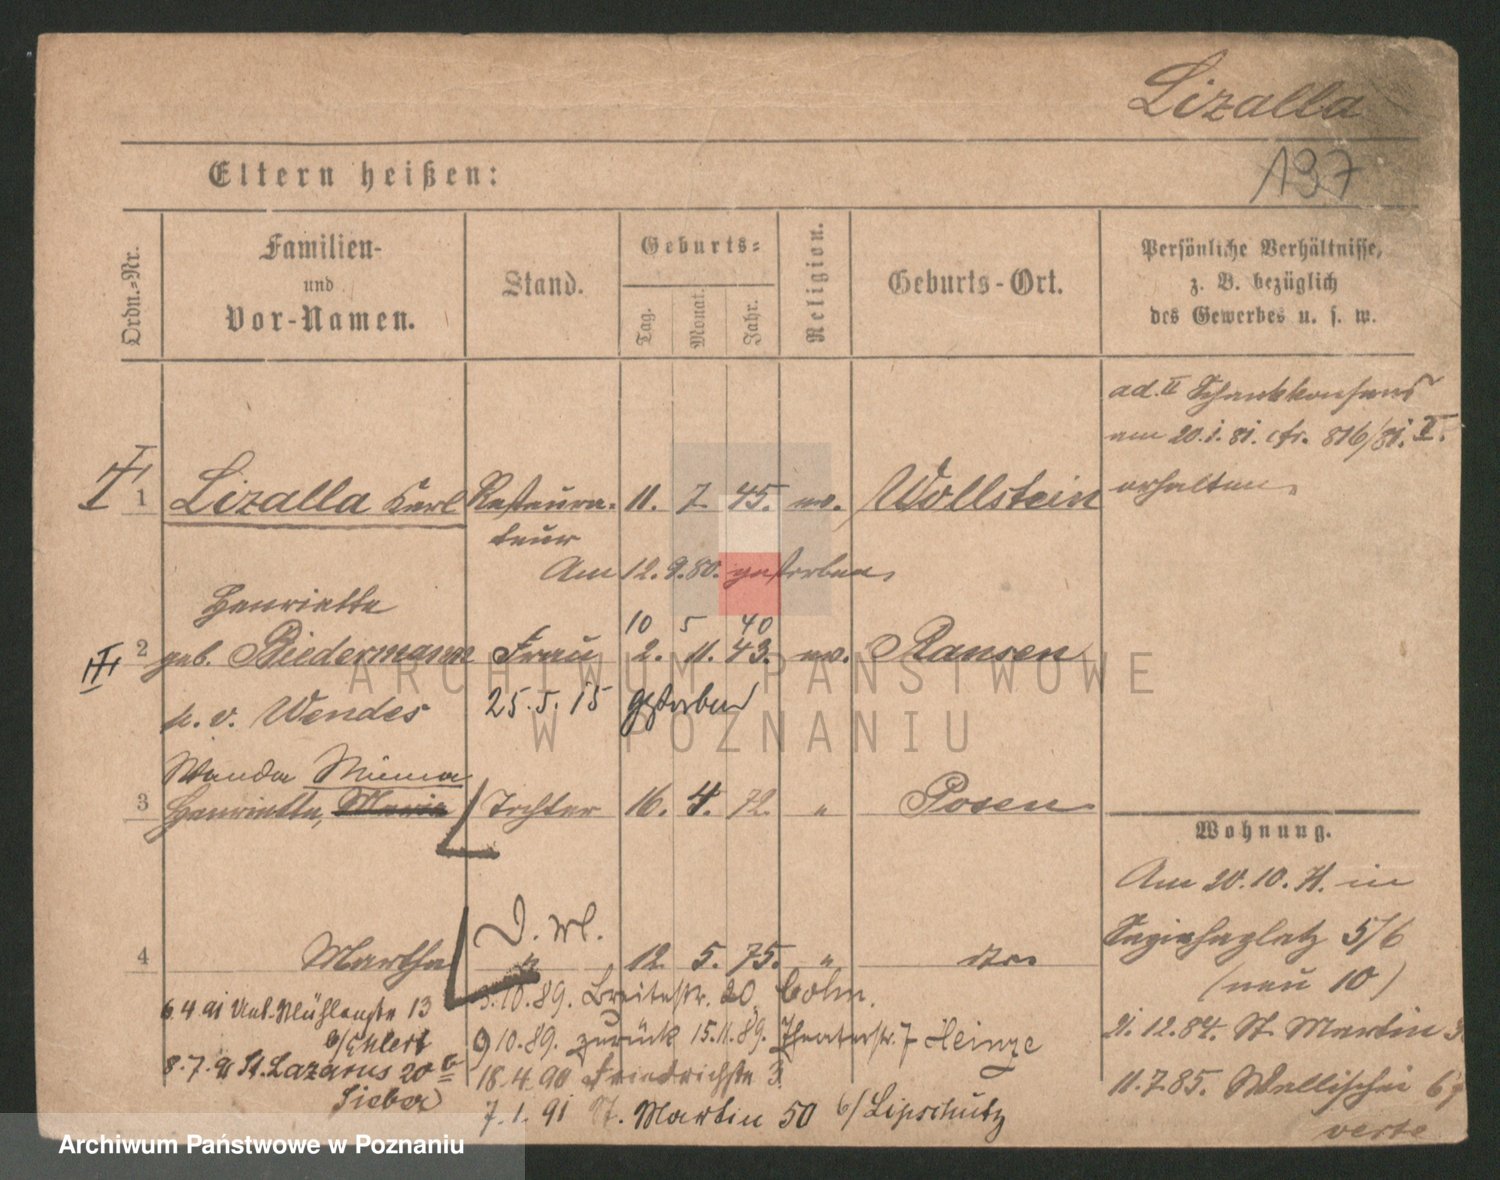 Lizalla
137
Eltern heißen:
Ordn.-Nr.
Familien-
und
Vor-Namen.
Stand.
Geburts-
Tag.
Monat.
Jahr.
Religion.
Geburts-Ort.
Persönliche Verhältnisse,
z. B. bezüglich
des Gewerbes u. s. w.
ad. II Schankkonsens
am 20.1.81. cfr. 816/81. II.
erhalten.
1 Lizalla Karl Restaura- 11. 7. 45. ev. Wollstein
teur
Am 12. 9. 80. gestorben
Henriette
10 5 40
2 geb. Biedermann Frau 2. 11. 43. ev. Ransen
v. Wendes 25. 5. 15 gestorben
Wanda Minna
3 Henriette, Marie Tochter 16. 4. 72. " Posen
4 Martha " 12. 5. 75. " dto
Wohnung.
Am 20. 10. 71. in
Sapiehaplatz 5/6
(neu 10)
21. 12. 84. St. Martin
11. 7. 85. Wallischei
verte
3. 10. 89. Breitestr. 20, Cohn.
9 10. 89. zurück 15. 11. 89. Theaterstr. 7 Heinze
18. 4. 90 Friedrichstr 3
7. 1. 91 St. Martin 50 b/Lipschütz
6. 4 91 Unt. Mühlenstr 13
b/Ehlert
8. 7. 91 St. Lazarus 20
Sieber
ARCHIWUM PAŃSTWOWE
W POZNANIU
Archiwum Państwowe w Poznaniu